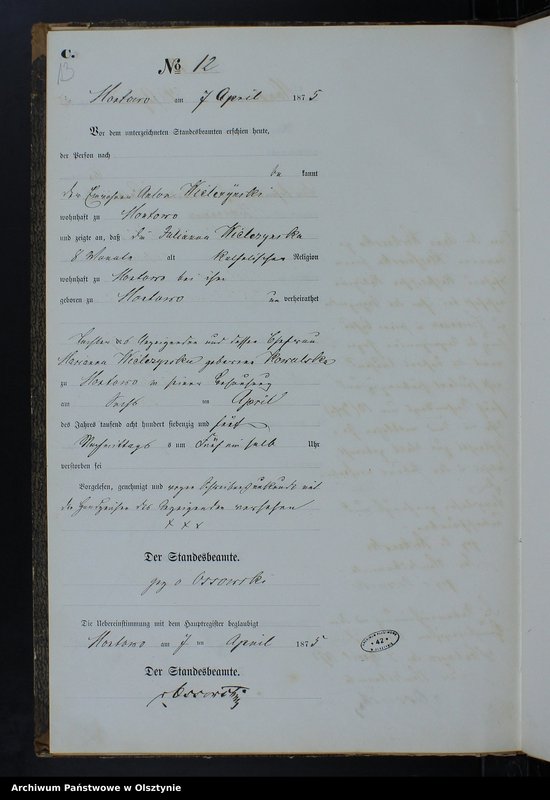 C.
13
No 12
Mortowo am 7 April 1875
Vor dem unterzeichneten Standesbeamten erschien heute,
der Person nach
be kannt
der Einwohner Anton Wielezynski
wohnhaft zu Mortowo
und zeigte an, daß die Julianna Wielezynska
8 Monate alt katholischer Religion
wohnhaft zu Mortowo bei ihm
geboren zu Mortowo un verheirathet
Tochter des Anzeigenden und dessen Ehefrau
Marianna Wielezynska geborene Kowalska
zu Mortowo in seiner Behausung
am Sechs ten April
des Jahres tausend acht hundert siebenzig und fünf
Nachmittags um Fünf ein halb Uhr
verstorben sei
Vorgelesen, genehmigt und wegen Schreibensunkunde mit
den Handzeichen des Anzeigenden versehen
x x x
Der Standesbeamte.
gez v Ossowski
Die Uebereinstimmung mit dem Hauptregister beglaubigt
Mortowo am 7 ten April 1875
Der Standesbeamte.
v Ossowski
42
Archiwum Państwowe w Olsztynie